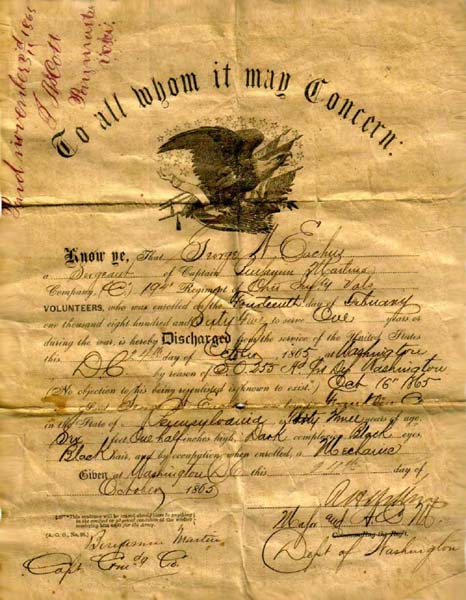 Paid november 2nd 1865
Paymaster
To all whom it may Concern:
Know ye, That George W. Eachus
a Sergeant of Captain Benjamin Martin's
Company, (C,) 194" Regiment of Ohio Infty Vols
VOLUNTEERS, who was enrolled on the Fourteenth day of February
one thousand eight hundred and Sixty Five to serve One years or
during the war, is hereby Discharged from the service of the United States
this 24th day of October, 1865, at Washington
D C by reason of S. O. 255 Washington
(No objection to his being reenlisted is known to exist.) Oct 16" 1865
in the State of Pennsylvania is Thirty Three years of age,
Six feet One half inches high, Dark complexion, Black eyes,
Black hair, and by occupation, when enrolled, a Mechanic
Given at Washington D C this 24th day of
October 1865
[A. G. O., No. 99.]
Benjamin Martin
Capt Comdg Co.
Major and A. C. M.
Commanding the Reg't.
Dept of Washington